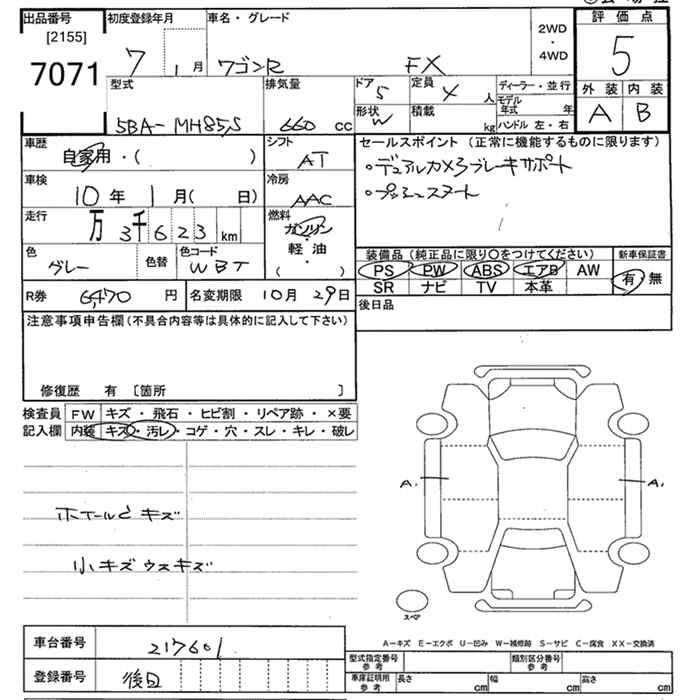 出品番号 初度登録年月 車名・グレード 評価点
[2155]
7071 7 1月 ワゴンR FX 2WD・4WD 5
型式 排気量 ドア 5 定員 4人 ディーラー・並行 外装 内装
5BA-MH85S 660 cc 形状 W 積載 kg モデル年式 年 ハンドル 左・右 A B
車歴 自家用・( ) シフト AT セールスポイント (正常に機能するものに限ります)
・デュアルカメラブレーキサポート
車検 10年 1月( 日) 冷房 AAC ・プッシュスタート
走行 万 3千623km 燃料 ガソリン・軽油 ( ・ )
色 グレー 色替 色コード WBT 装備品(純正品に限り○をつけてください) 新車保証書
PS PW ABS エアB AW 有・無
SR ナビ TV 本革
R券 6,470円 名変期限 10月29日 後日品
注意事項申告欄(不具合内容等は具体的に記入して下さい)
修復歴 有 〔箇所 〕
検査員記入欄 FW キズ・飛石・ヒビ割・リペア跡・×要
内装 キズ・汚レ・コゲ・穴・スレ・キレ・破レ
A. A.
ホイールCキズ
小キズウスキズ
スペア
車台番号 217601
A-キズ E-エクボ U-凹み W-補修跡 S-サビ C-腐食 XX-交換済
型式指定番号 参考 類別区分番号 参考
登録番号 後日 車庫証明用 参考 長さ cm 幅 cm 高さ cm